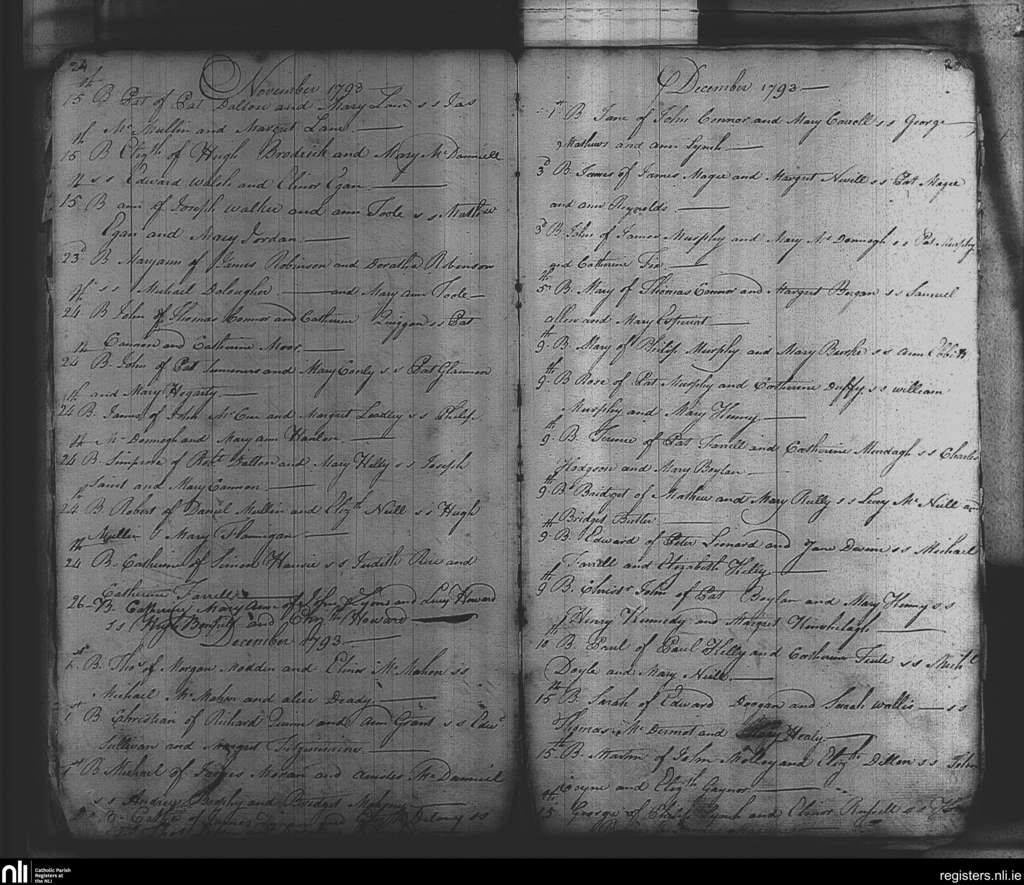 24
November 1793
15th B Pat of Pat Dalton and Mary Lane ss Jas
Mc Mullin and Margret Lane
15th B Elizth of Hugh Broderick and Mary Mc Danniell
ss Edward Walsh and Elinor Egan
15th B ann of Joseph walker and ann Toole ss Mathew
Egan and Mary Jordan
23d B Maryann of James Robinson and Dorathea Robinson
ss Michael and Mary ann Toole
24th B John of Thomas Connor and Catherine ss Pat
Cannon and Catherine Moor
24th B John of Pat Summers and Mary Conly ss Pat Glannon
and Mary Hogarty
24th B James of John Mc and Margret Leadley ss Philip
Mc Donnogh and Mary ann Hanlon
24th B of Robt Dalton and Mary Kelly ss Joseph
and Mary Cannon
24th B Robert of Daniel Mullin and Elizth Neill ss Hugh
Mullen Mary Flannigan
24th B Catherine of Simon ss Judith Rice and
Catherine Farrell
26 B. Catherine Mary Ann of John Lyons and Lucy Howard
ss Hugh and Elizth Howard
December 1793
1st B. Thos of Morgan Madden and Elinor Mc Mahon ss
Michael Mc Mahon and alice Deady
1st B Christian of Richard Quinn and Ann Grant ss Edwd
Sullivan and Margret
1st B Michael of James Moran and Mc Danniel
ss Andrew and Bridget
B. Cathe of James and Elizth Delany ss
December 1793
1st B Jane of John Connor and Mary Carroll ss George
Mathews and ann Lynch
3d B James of James Magee and Margret Nevill ss Patt Magee
and ann Reynolds
3d B John of James Murphy and Mary Mc Donnogh ss Pat Murphy
and Catherine Fox
5th B. Mary of Thomas Connor and Margret Bergan ss Samuel
Allen and Mary
9th B. Mary of Philip Murphy and Mary Burke ss ann
9th B Rose of Pat Murphy and Catherine Duffy ss william
Murphy and Mary Henny
9th B. Terence of Pat Farrell and Catherine Murtagh ss Charles
Hodgson and Mary Boylan
9th B Bridget of Mathew and Mary Reilly ss Lucy Mc Neill and
Bridget Butler
9th B. Edward of Peter Leonard and Jane Davin ss Michael
Farrell and Elizabeth Kelly
9th B Christr John of Pat Boylan and Mary Henny ss
Henry Kennedy and Margret
10th B. Paul of Paul Kelly and Catherine ss Michl
Doyle and Mary Neill
15th B. Sarah of Edward Deegan and Sarah wallis ss
Thomas Mc Dermot and Mary Healy
15th B Martin of John Molloy and Elizth Dillon ss John
Coyne and Elizth Gaynor
15th George of Lynch and Elinor Russell ss
nli
Catholic Parish
Registers at
the NLI
registers.nli.ie